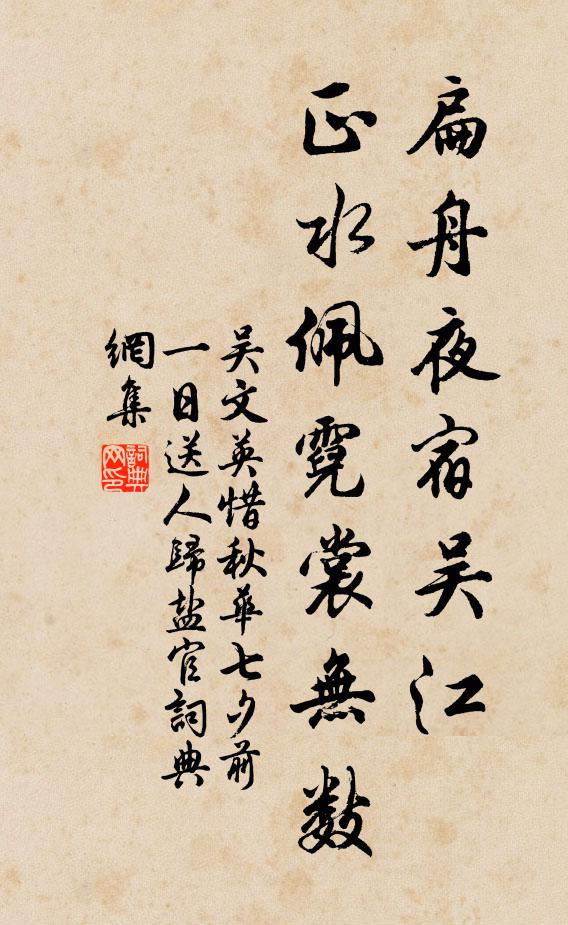 扁舟夜宿吴江
正水佩霓裳無數
吴文英惜秋華七夕前
一日送人歸盐官詞典
網集
詞典网印